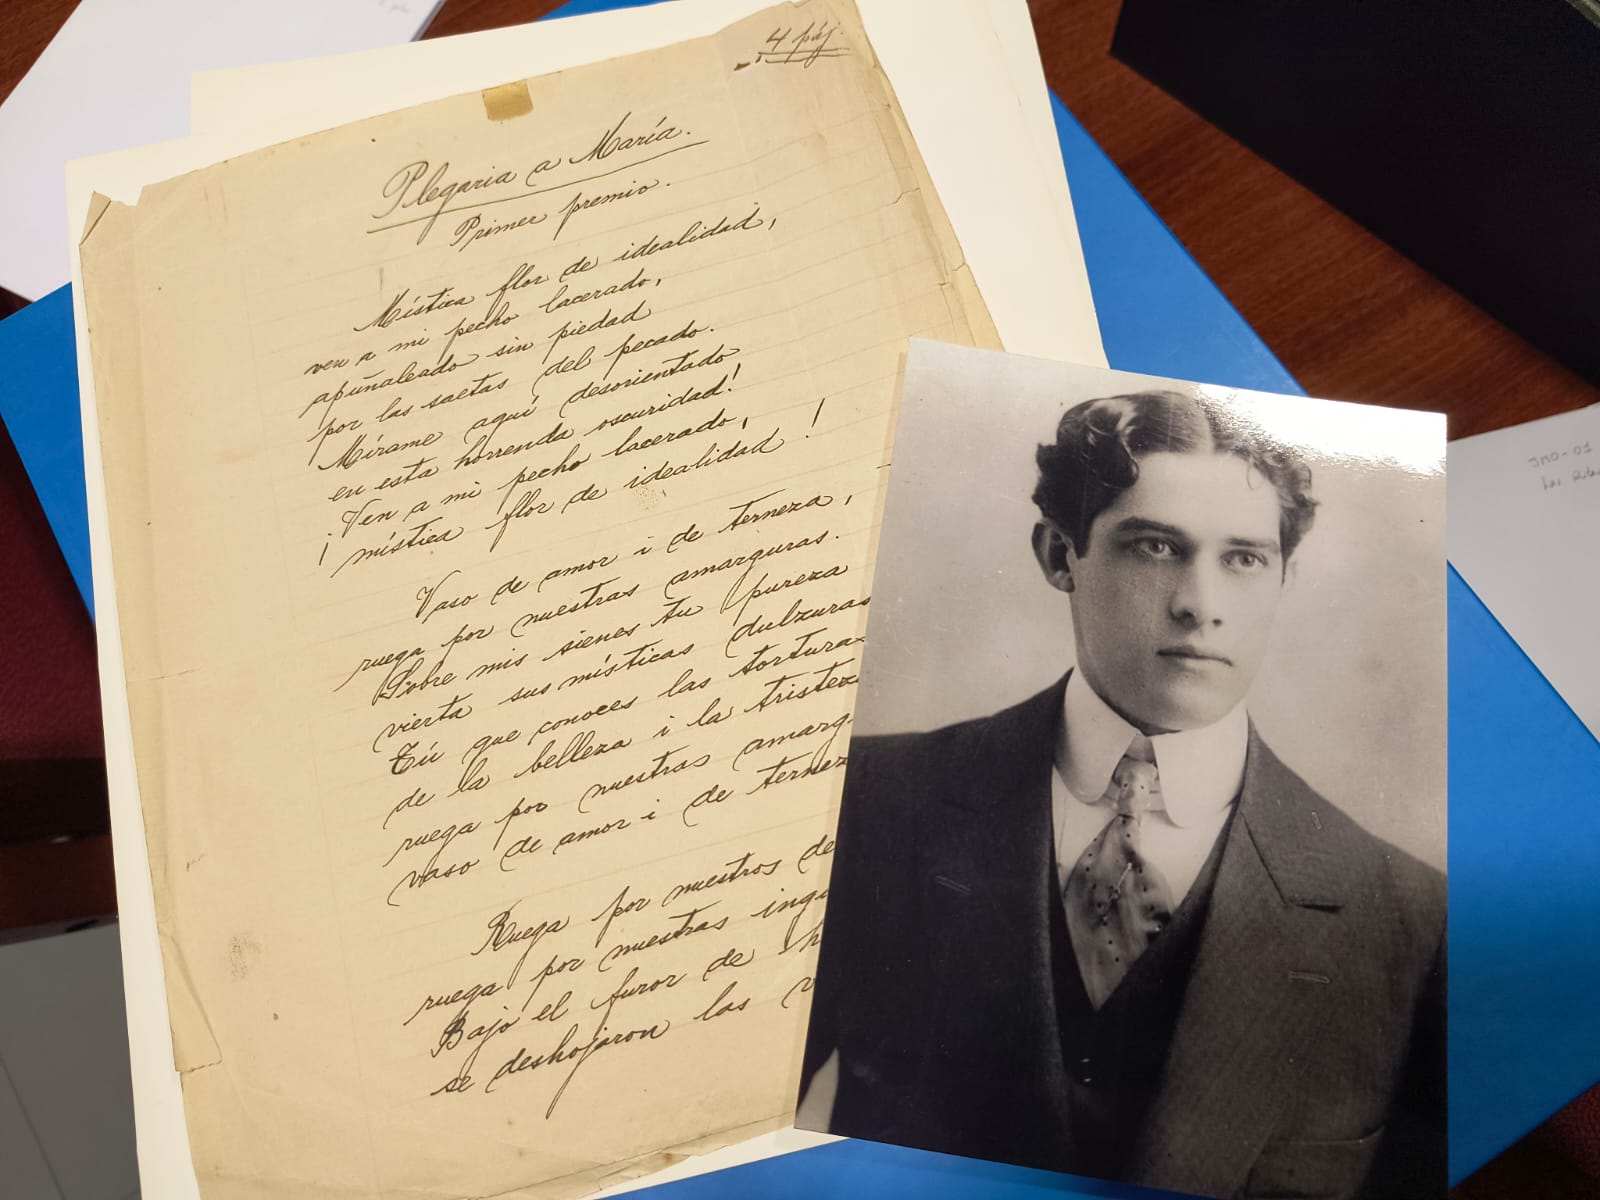 4 páj.
Plegaria a María.
Primer premio.
Mística flor de idealidad,
ven a mi pecho lacerado,
apuñaleado sin piedad
por las saetas del pecado.
Mírame aquí desorientado
en esta horrenda oscuridad!
Ven a mi pecho lacerado,
¡mística flor de idealidad!
Vaso de amor i de terneza,
ruega por nuestras amarguras.
Sobre mis sienes tu pureza
vierta sus místicas dulzuras
Tú que conoces las torturas
de la belleza i la tristeza
ruega por nuestras amarg
vaso de amor i de ternez
Ruega por nuestros de
ruega por nuestras ing
Bajo el furor de
se deshojaron las
JMO-01